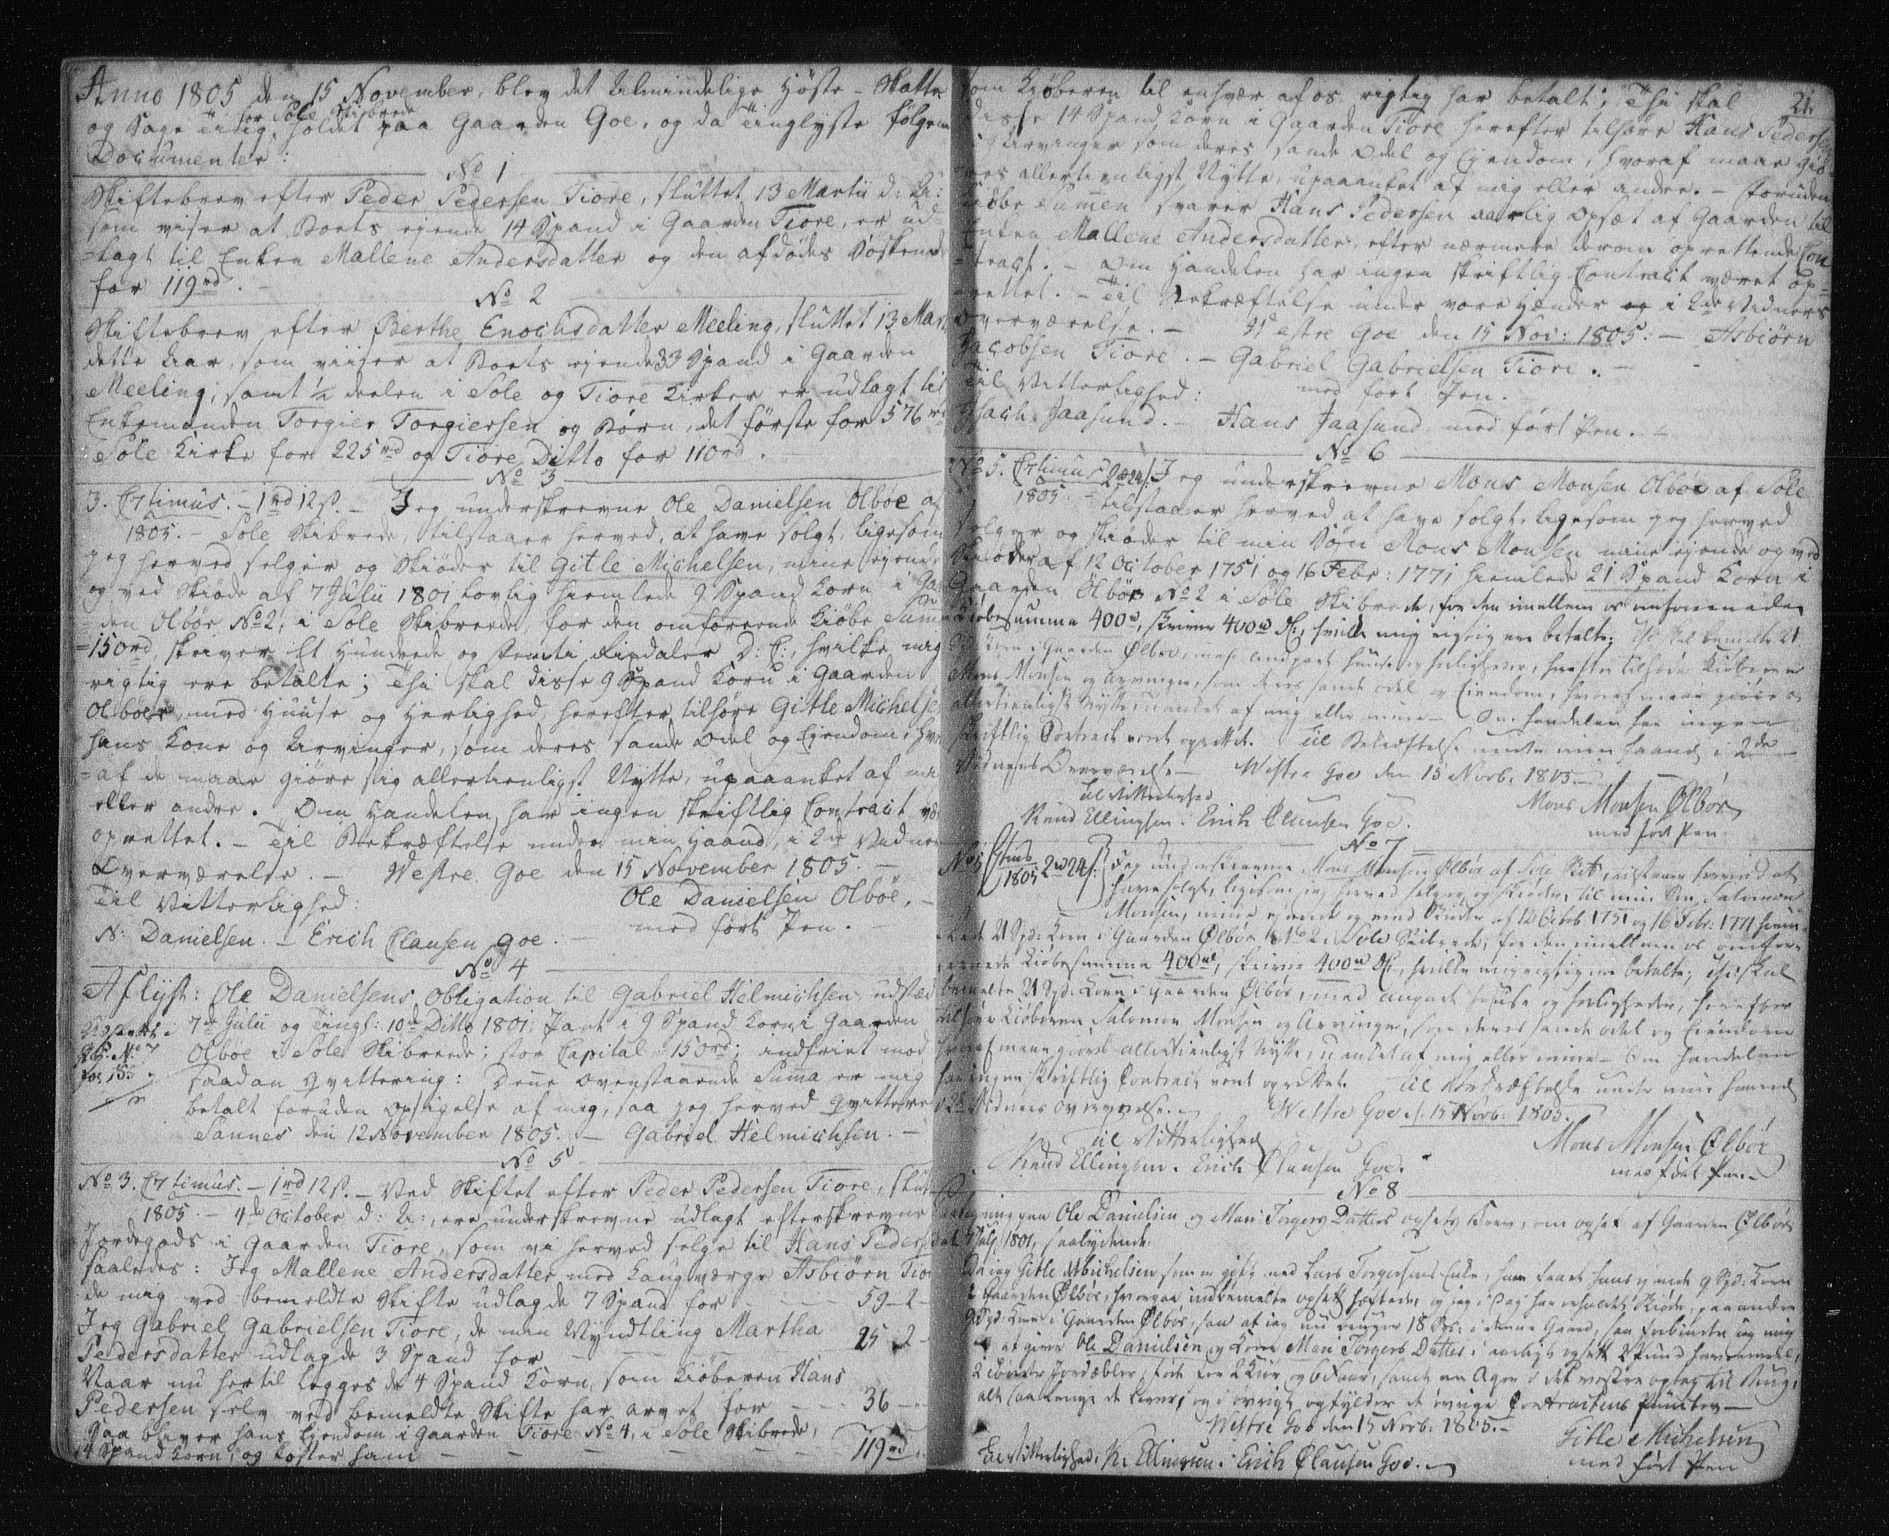 Anno 1805 den 15 November, blev det Almindelige Høste-Skatte
og Sage Ting for Sole Skibrede holdet paa Gaarden Goe, og da Tinglyste følgende
Documenter:
No 1
Skiftebrev efter Peder Pedersen Tiore, sluttet 13 Martii d: A:
som viser at Boets ejende 14 Spand i Gaarden Tiore, er ud-
-lagt til Enken Mallene Andersdatter og den afdødes Søskende
for 119 rd.
No 2
Skiftebrev efter Berthe Enochsdatter Meeling, sluttet 13 Mart
dette Aar, som viiser at Boets ejende 33 Spand i Gaarden
Meeling, samt 1/4 deelen i Sole og Tiore Kirker er udlagt til
Enkemanden Torgier Torgiersen og Børn, det første for 576 rd
Sole Kirke for 225 rd og Tiore Ditto for 110 rd.
No 3
3. Crtimus. - 1 rd 12 s. - Jeg underskrevne Ole Danielsen Olbøe af
1805. - Sole Skibrede, tilstaaer herved, at have solgt, ligesom
jeg herved selger og Skiøder til Gitle Michelsen, mine ejende
og ved Skiøde af 7 Julii 1801 lovlig hiemlede 9 Spand Korn i Gaar-
den Olbør No 2, i Sole Skibrede, for den omforeende Kiøbe Summa
-150 rd, skriver Et Hundrede og Femti Rixdaler D: C:, hvilke mig
rigtig ere betalte; Thi skal disse 9 Spand Korn i Gaarden
Olboer, med Huuse og Herlighed, herefter tilhøre Gitle Michelsen
hans Kone og Arvinger, som deres sande Odel og Ejendom, hvor-
-af de maae giøre sig allertienligst Nytte, upaaanket af mig
eller andre. Om Handelen har ingen skriftlig Contract været
oprettet. - Til Bekræftelse under min Haand, i 2de Vidners
Overværelse. - Westre Goe den 15 November 1805. -
Til Vitterlighed: Ole Danielsen Olbøe,
N: Danielsen. - Erich Clausen Goe. - med ført Pen. -
No 4
Aflyst: Ole Danielsens Obligation til Gabriel Helmichsen, udstæd
7de Julii og Tingl: 10de Ditto 1801, Pant i 9 Spand Korn i Gaarden
Olbøe i Sole Skibrede; stor Capital 150 rd; indfriet med
saadan Qvittering: Denne ovenstaaende Summa er mig
betalt foruden Opsigelse af mig, saa jeg herved Qvitterer
Sannes den 12 November 1805. - Gabriel Helmichsen. -
No 5
No 3. Crtimus. - 1 rd 12 s. - Ved Skiftet efter Peder Pedersen Tiore, slut
1805. - 4de October d: A:, ere underskrevne udlagt efterskrevne
Jordegods i Gaarden Tiore, som vi herved selge til Hans Pedersen
saaledes: Jeg Mallene Andersdatter med Laugværge Asbiørn Tiore
de mig ved bemeldte Skifte udlagde 7 Spand for - - - 59 - 2 -
Jeg Gabriel Gabrielsen Tiore, de min Myndtling Martha
Pedersdatter udlagde 3 Spand for - - - 25 - 2 -
Naar nu hertil legges de 4 Spand Korn, som Kiøberen Hans
Pedersen selv ved bemeldte Skifte har arvet for - - 36 -
Saa bliver hans Ejendom i Gaarden Tiore No 4, i Sole Skibrede,
14 Spand Korn, og koster ham - - - 119 rd
21.
som Kiøberen til enhver af os rigtig har betalt; Thi skal
disse 14 Spand Korn i Gaarden Tiore herefter tilhøre Hans Pedersen
og Arvinger som deres sande Odel og Ejendom, hvoraf maae giø-
res allertienligst Nytte, upaaanket af mig eller andre. - Foruden
Kiøbe Summen svarer Hans Pedersen aarlig Opsæt af Gaarden til
Enken Mallene Andersdatter, efter nærmere derom oprettende Con-
-tract. - Om Handelen har ingen skriftlig Contract været op-
-rettet. - Til Bekræftelse under vore Hænder og i 2de Vidners
Overværelse. - Westre Goe den 15 Nov: 1805. - Asbiørn
Jacobsen Tiore. - Gabriel Gabrielsen Tiore. -
Til Vitterlighed: med ført Pen.
Isach Jaasund. - Hans Jaasund med ført Pen. -
No 6
No 5. Crtimus 2 rd 24 s. Jeg underskrevne Mons Monsen Olbøe af Sole
1805. - tilstaaer herved at have solgt, ligesom jeg herved
selger og Skiøder til min Søn Mons Monsen, mine ejende og ved
Skiøder af 12 October 1751 og 16 Febr: 1771 hiemlede 21 Spand Korn i
Gaarden Olbør No 2 i Sole Skibrede, for den imellem os omforenede
Kiøbesumma 400 rd, skriver 400 rd D.C., hvilke mig rigtig ere betalte; Thi skal bemelte 21
Spd: Korn i Gaarden Olbør, med anpart huuse og herligheder, herefter tilhøre Kiøberen
Mons Monsen og Arvinger, som deres sande odel og Eiendom, hvoraf maae giøres
allertienligst Nytte, uanket af mig eller mine - Om handelen har ingen
skriftlig Contract været oprettet. Til Bekræftelse under min haand i 2de
Vidners Overværelse - Westre Goe den 15 Novb: 1805 -
til Vitterlighed Mons Monsen Olbør
Knud Ellingsen. Erich Clausen Goe. med ført Pen
No 7
No 5 Ctms 1805 2 rd 24 s. Jeg underskrevne Mons Monsen Olbør af Sole Skib: tilstaaer herved at
have solgt, ligesom jeg herved selger og skiøder, til min Søn Salomon
Monsen, mine ejende og ved Skiøder af 12 Octob: 1751 og 16 Febr: 1771 hiem-
lede 21 Spd: Korn i Gaarden Olbør No 2 i Sole Skibrede, for den imellem os omfor-
enede Kiøbesumma 400 rd, skriver 400 rd D.C., hvilke mig rigtig ere betalte; thi skal
bemelte 21 Spd: Korn i Gaarden Olbør, med anpart huuse og herligheder, herefter
tilhøre Kiøberen Salomon Monsen og Arvinger, som deres sande odel og Eiendom
hvoraf maae giøres allertienligst Nytte, uanket af mig eller mine - Om handelen
har ingen skriftlig Contract været oprettet. Til Bekræftelse under min haand
i 2de Vidners overværelse. - Westre Goe d: 15 Novb: 1805.
til Vitterlighed Mons Monsen Olbør
Knud Ellingsen. Erich Clausen Goe. med ført Pen. -
No 8
paa Ole Danielsen og Mari Torgers Datters opsets Brev, om opset af Gaarden Olbør
Julj 1801, saalydende:
Da jeg Gitle Michelsen, som er gift med Lars Torgersens Enke, har faaet hans ejende 9 Spd: Korn
i Gaarden Olbør, hvorpaa indbemelte opset heftede, og jeg i Dag har erholdet Skiøde, paa andre
9 Spd: Korn i Gaarden Olbør, saa at jeg nu bruger 18 Sp: i denne Gaard, saa forbinder jeg mig
at give Ole Danielsen og Kone Mari Torgers Datter i aarligt opset 2 Pund havremeel,
2 tønder Jordæbler, føde for 2 Kiør og 6 Faar, samt en Ager i det vestre opbrud til Brug,
alt saalenge de lever, og i øvrigt opfylder de øvrige Contractens Puncter -
Westre Goe den 15 Novb: 1805. -
Gitle Michelsen
Til Vitterlighed: K: Ellingsen. Erich Clausen Goe. - med ført Pen